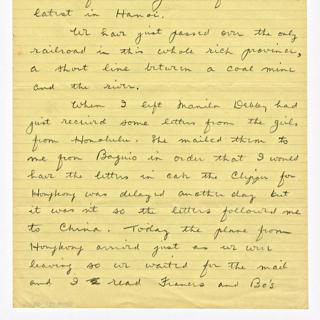 latest in Hanoi.
We have just passed over the only
railroad in this whole rich province,
a short line between a coal mine
and the river.
When I left Manila Debby had
just received some letters from the girls
from Honolulu. She mailed them to
me from Baguio in order that I would
have the letters in case the Clipper for
Hongkong was delayed another day but
it wasn't so the letters followed me
to China. Today the plane from
Hongkong arrived just as we were
leaving so we waited for the mail
and I read Frances and Bo's